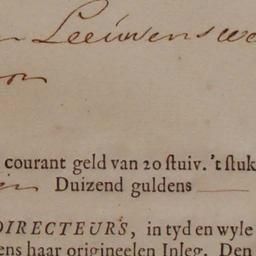 n Leeuwens we
on
courant geld van 20 ſtuiv. 't ſtuk
en Duizend guldens
DIRECTEURS, in tyd en wyle
ens haar origineelen Inleg. Den